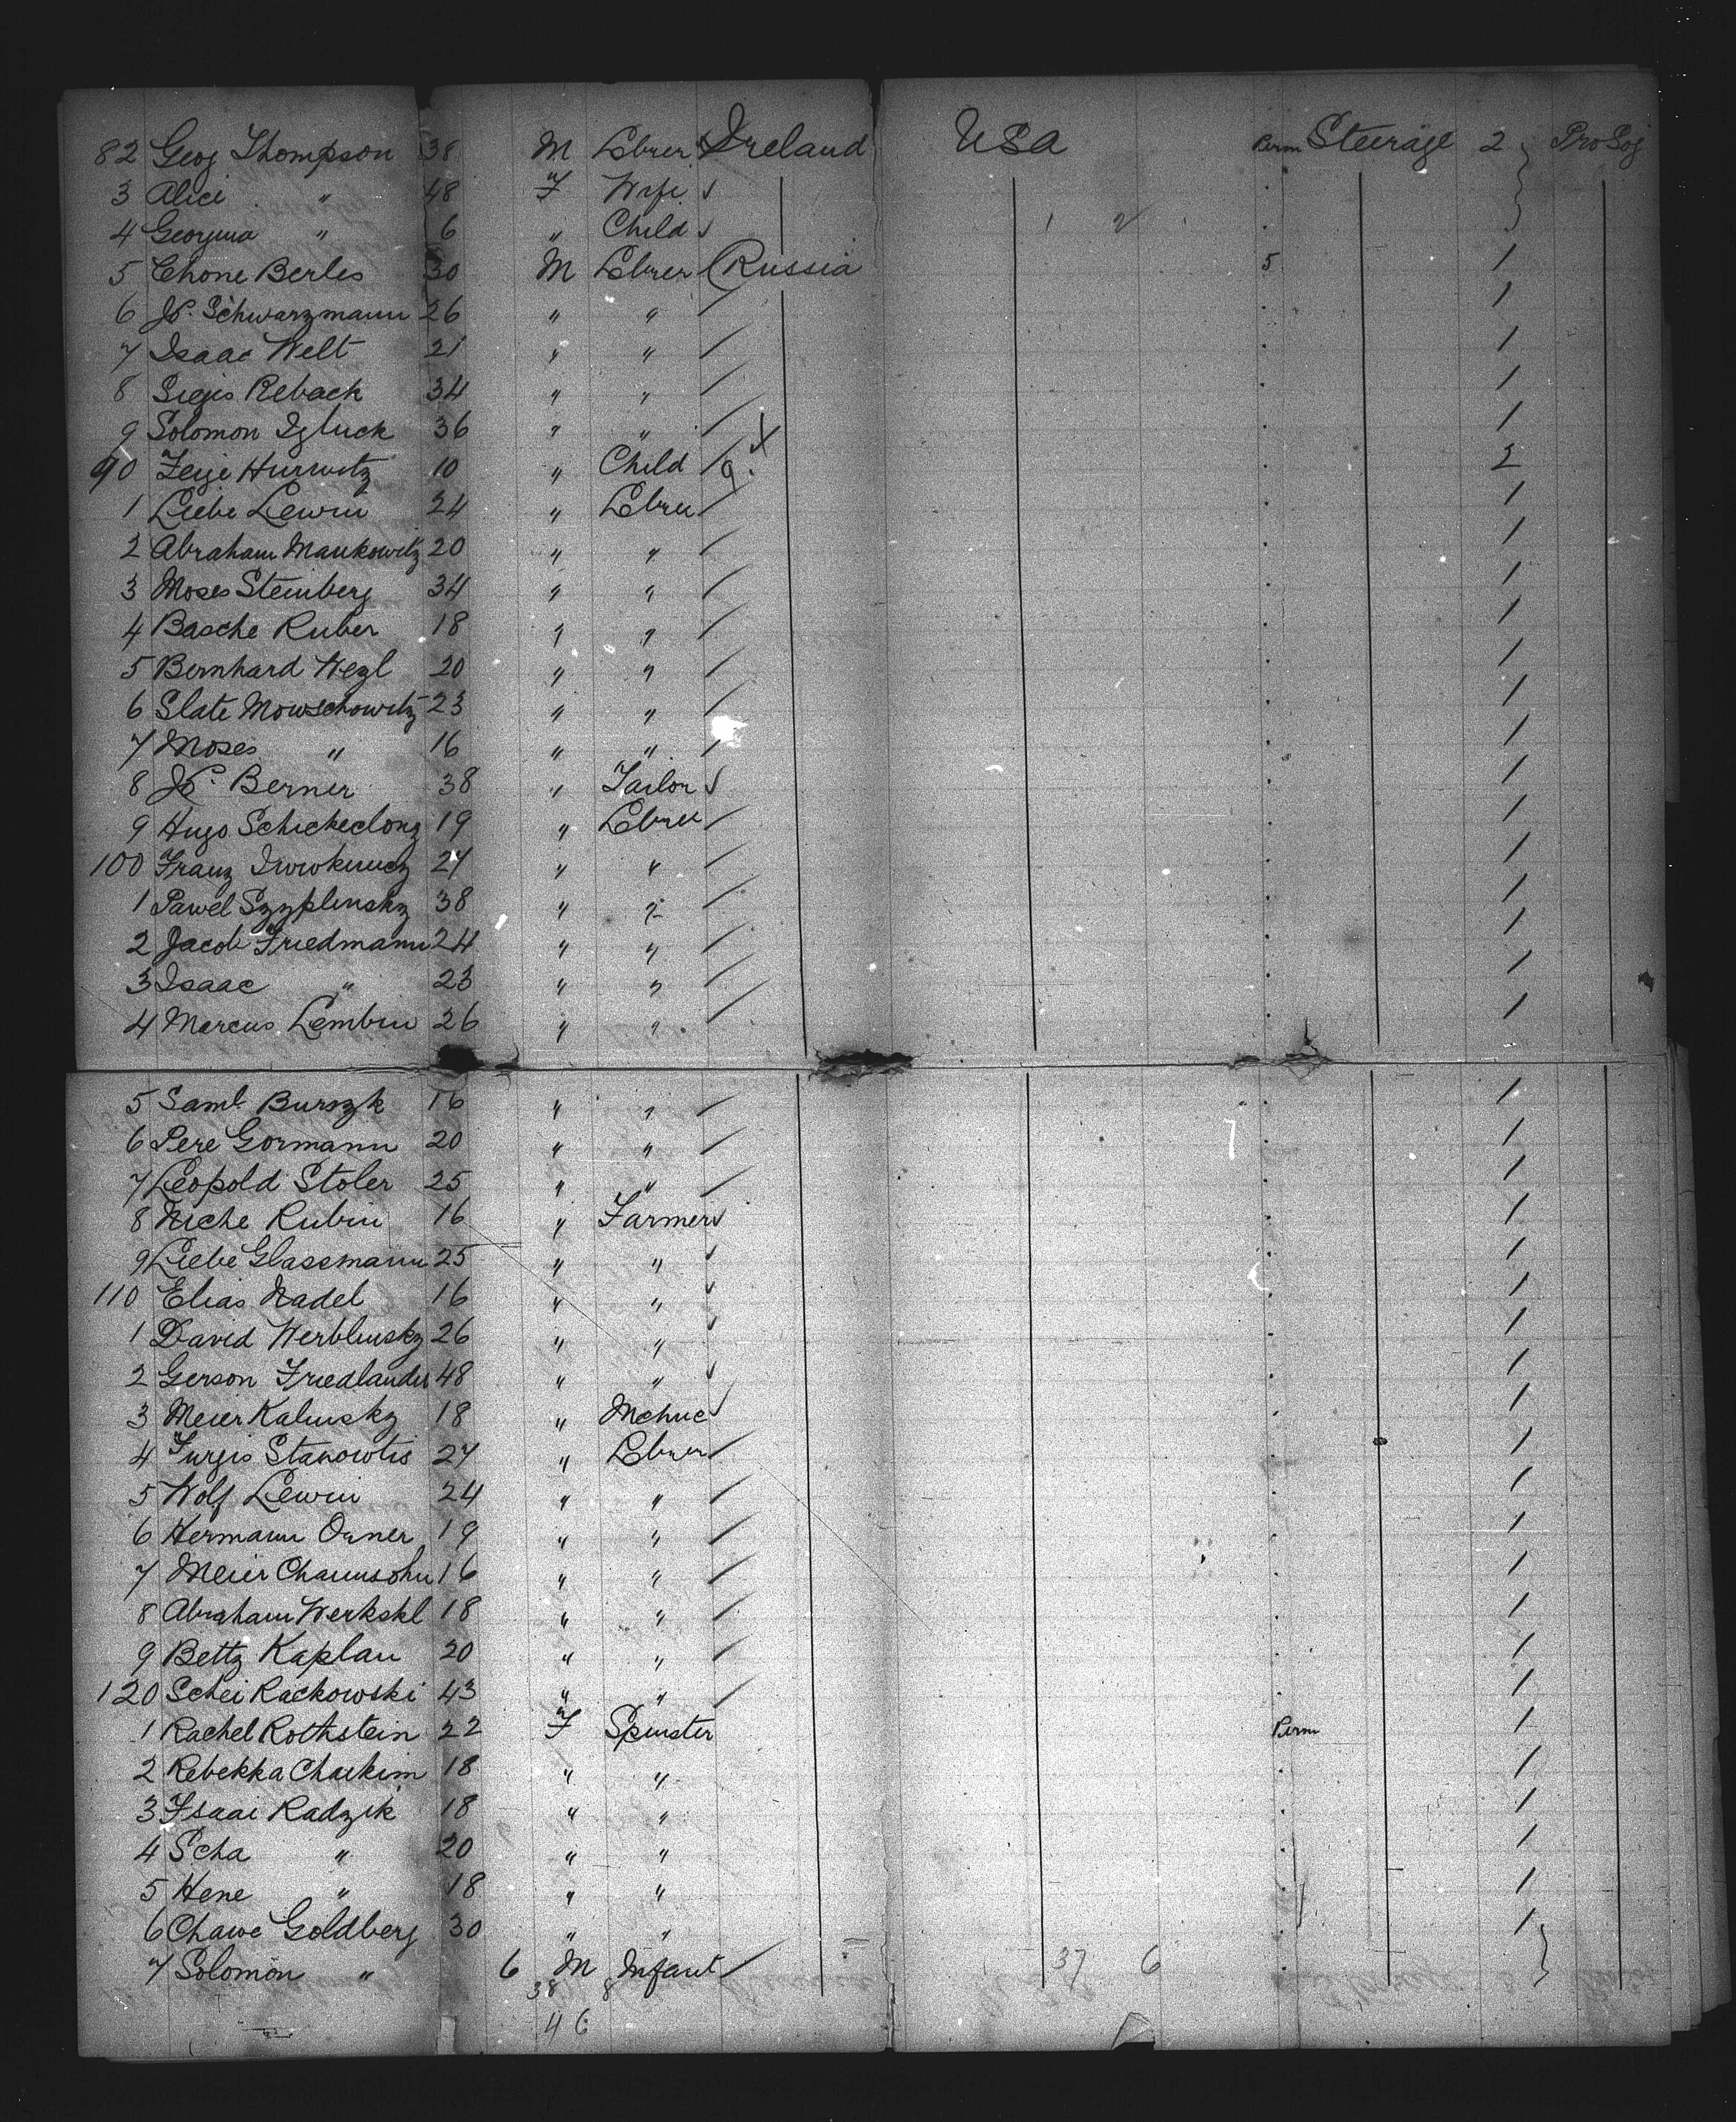 82 Geog Thompson 38 M Lbrer Ireland USA Perm Steerage 2 Pro Soj
3 Alice " 48 F Wife
4 Georgina " 6 " Child
5 Chone Berles 30 M Lbrer Russia 5 1
6 Schwarzmann 26 " " 1
7 Isaac Welt 21 " " 1
8 Reback 34 " " 1
9 Solomon Igluck 36 " " 1
90 Hurwitz 10 " Child 9. 2
1 Liebe Lewin 24 " Lbrer 1
2 Abraham Mankowitz 20 " " 1
3 Moses Steinberg 34 " " 1
4 Basche Ruber 18 " " 1
5 Bernhard 20 " " 1
6 Slate Mowschowitz 23 " " 1
7 Moses " 16 " " 1
8 Berner 38 " Tailor 1
9 Hugo 19 " Lbrer 1
100 Franz 27 " " 1
1 Pawel Szyplinsky 38 " " 1
2 Jacob Friedmann 24 " " 1
3 Isaac " 23 " " 1
4 Marcus Lembin 26 " " 1
5 Saml Burszk 16 " " 1
6 Pere Gormann 20 " " 1
7 Leopold Stoler 25 " " 1
8 Niche Rubin 16 " Farmer 1
9 Liebe Glassmann 25 " " 1
110 Elias Nadel 16 " " 1
1 David Werblinsky 26 " " 1
2 Gerson Friedlander 48 " " 1
3 Meier Kalinsky 18 " Mchnc 1
4 Jurgis Stanowtis 27 " Lbrer 1
5 Wolf Lewin 24 " " 1
6 Hermann Orner 19 " " 1
7 Meier Chaimsohn 16 " " 1
8 Abraham Werkskl 18 " " 1
9 Betty Kaplan 20 " " 1
120 Schei Rackowski 43 " " 1
1 Rachel Rothstein 22 F Spinster Perm 1
2 Rebekka Chaikim 18 " " 1
3 Isaai Radzik 18 " " 1
4 Scha " 20 " " 1
5 Hene " 18 " " 1
6 Chawe Goldberg 30 " " 1
7 Solomon " 6 M Infant 37 6
38 8
46